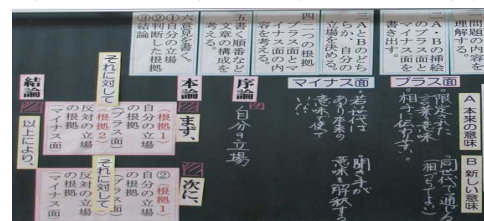 一 問題の内容を
理解する。
二 A・Bの挿絵
のプラス面と
マイナス面を
書き出す。
三 AとBのどち
らか、自分の
立場を決める。
四 二つの根拠
プラス面とマ
イナス面の内
容を考える。
五 書く順番など
文章の構成を
考える。
六 意見を書く。
①自分の立場
②判断した根拠
③結論
プラス面
マイナス面
A 本来の意味
B 新しい意味
言葉の意味
相手に
同世代で通じ
若い世代は
本来の
意味で使
聞き手が
意味を解釈する
序論
自分の立場
本論
まず、
①
根拠1
自分の立場
の根拠
(プラス面)
それに対して
根拠2
反対の立場
の根拠
マイナス面
次に、
②
根拠1
自分の立場
の根拠
(プラス面)
それに対して
反対の立場
の根拠
マイナス面
結論
以上により、